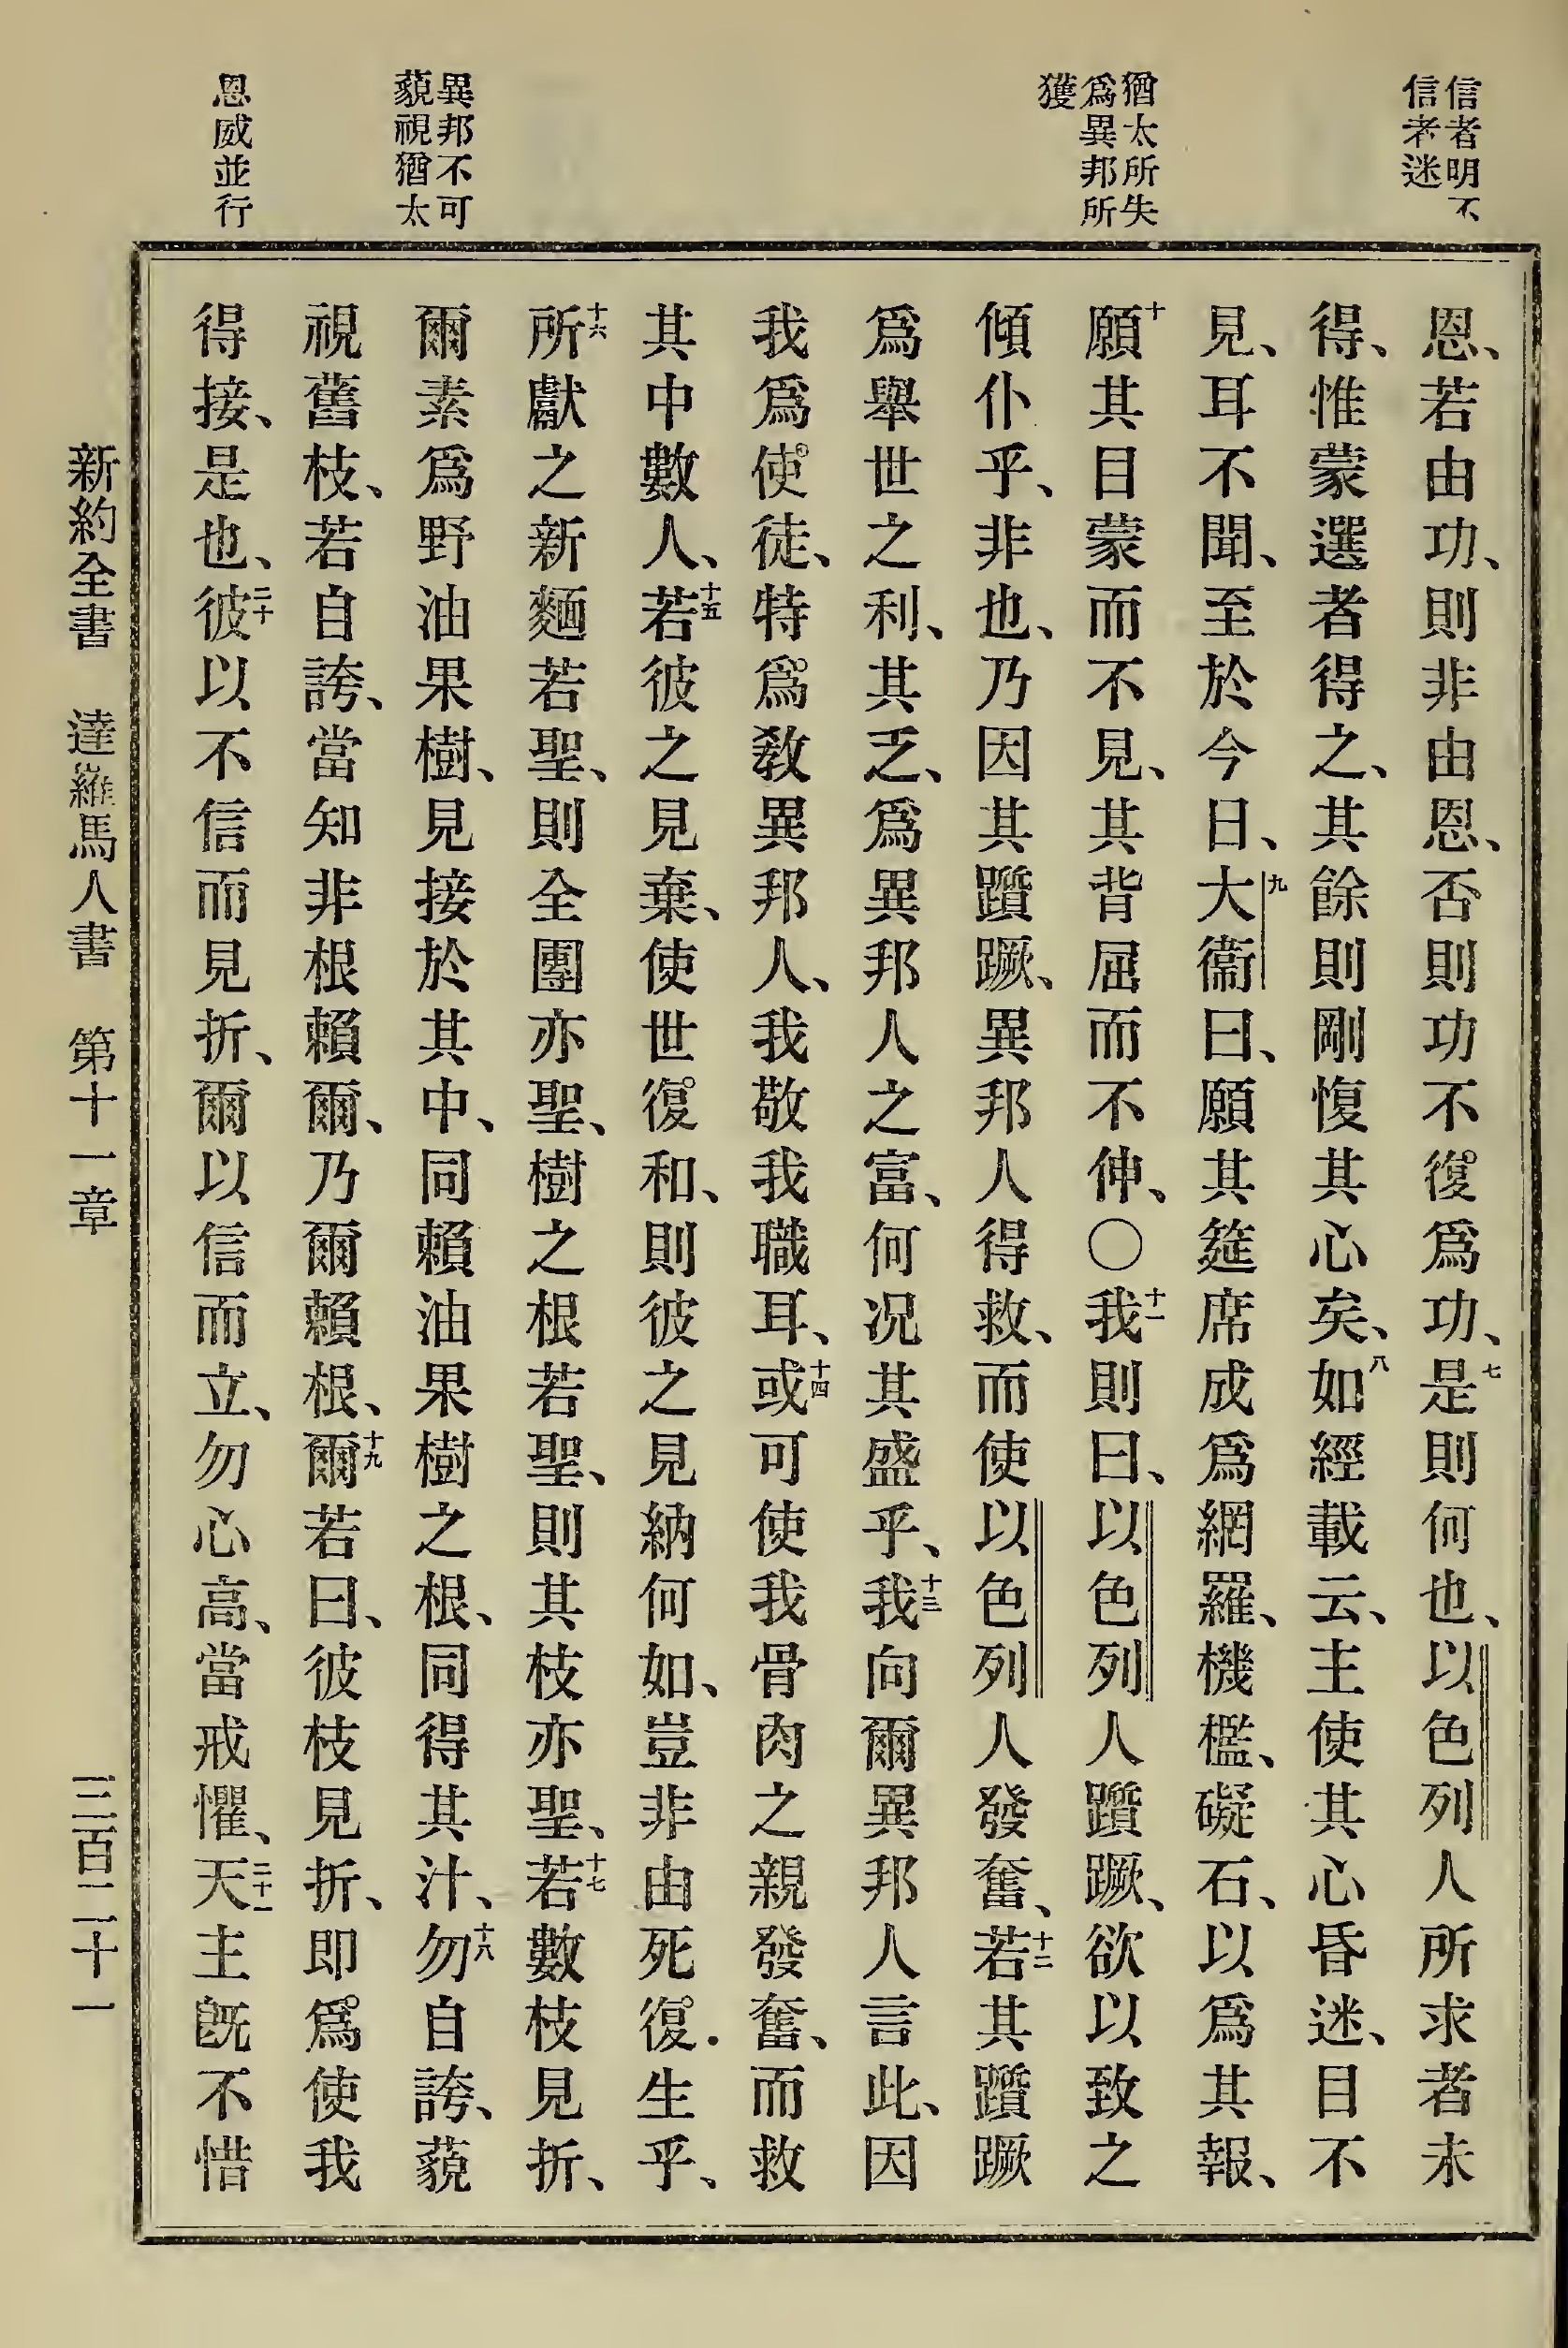 信者明不
信者迷
猶太所失
爲異邦所
獲
異邦不可
藐視猶太
恩威並行
恩、若由功、則非由恩、否則功不復爲功、七是則何也、以色列人所求者未
得、惟蒙選者得之、其餘則剛愎其心矣、八如經載云、主使其心昏迷、目不
見、耳不聞、至於今日、九大衞曰、願其筵席成爲網羅、機檻、礙石、以爲其報、
十願其目蒙而不見、其背屈而不伸、〇十一我則曰、以色列人躓蹶、欲以致之
傾仆乎、非也、乃因其躓蹶、異邦人得救、而使以色列人發奮、十二若其躓蹶
爲舉世之利、其乏、爲異邦人之富、何況其盛乎、十三我向爾異邦人言此、因
我爲使徒、特爲敎異邦人、我敬我職耳、十四或可使我骨肉之親發奮、而救
其中數人、十五若彼之見棄、使世復和、則彼之見納何如、豈非由死復生乎、
十六所獻之新麵若聖、則全團亦聖、樹之根若聖、則其枝亦聖、十七若數枝見折、
爾素爲野油果樹、見接於其中、同賴油果樹之根、同得其汁、十八勿自誇、藐
視舊枝、若自誇、當知非根賴爾、乃爾賴根、十九爾若曰、彼枝見折、即爲使我
得接、是也、二十彼以不信而見折、爾以信而立、勿心高、當戒懼、二十一天主旣不惜
新約全書　達羅馬人書　第十一章　三百二十一